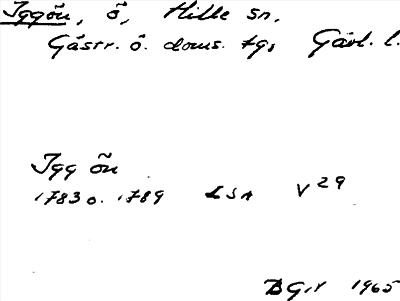 Iggön, ö, Hille sn.
Gästr. ö. doms. tg, Gävl. l.
Igg ön
1783 o. 1789 LSA V 29
1965